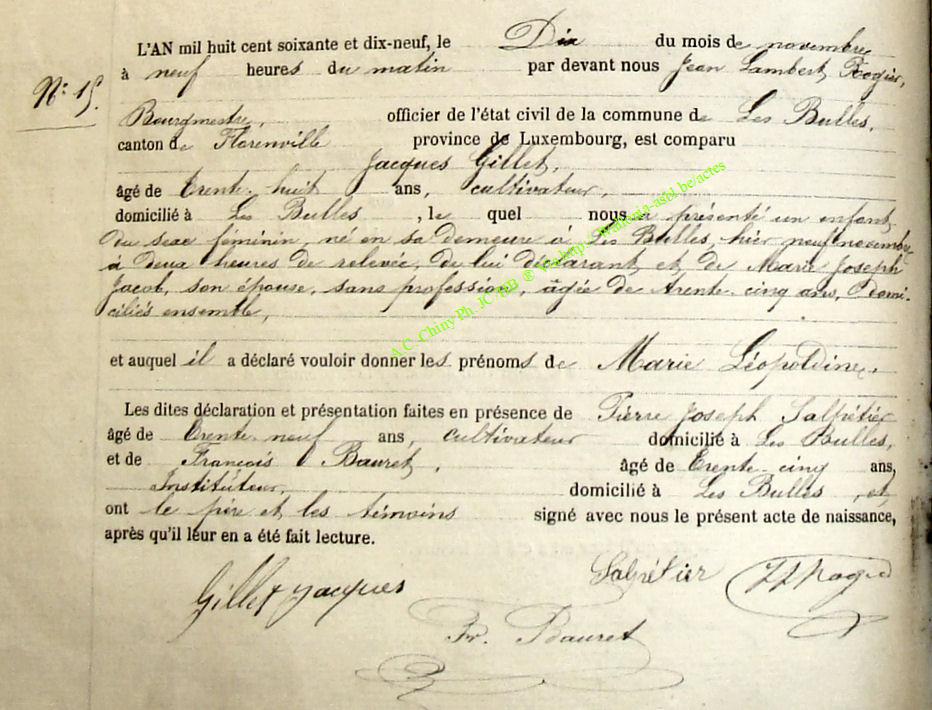 L'AN mil huit cent soixante et dix-neuf, le Dix du mois de novembre
à neuf heures du matin par devant nous Jean Lambert Rogier,
N: 15.
Bourgmestre, officier de l'état civil de la commune de Les Bulles,
canton de Florenville province de Luxembourg, est comparu
Jacques Gillet,
âgé de trente-huit ans, cultivateur,
domicilié à Les Bulles, le quel nous a présenté un enfant
du sexe féminin, né en sa demeure à Les Bulles, hier neuf novembre
à deux heures de relevée, de lui déclarant et de Marie Joseph
Jacob, son épouse, sans profession, âgée de trente-cinq ans, domi-
ciliés ensemble,
et auquel il a déclaré vouloir donner les prénoms de Marie Léopoldine.
Les dites déclaration et présentation faites en présence de Pierre Joseph Salpétier
âgé de trente-neuf ans, cultivateur domicilié à Les Bulles,
et de François Bauret, âgé de trente-cinq ans,
Instituteur, domicilié à Les Bulles, et
ont le père et les témoins signé avec nous le présent acte de naissance,
après qu'il leur en a été fait lecture.
Gillet jacques Salpétier
Fr. Bauret
A.C. Chiny Ph. JC